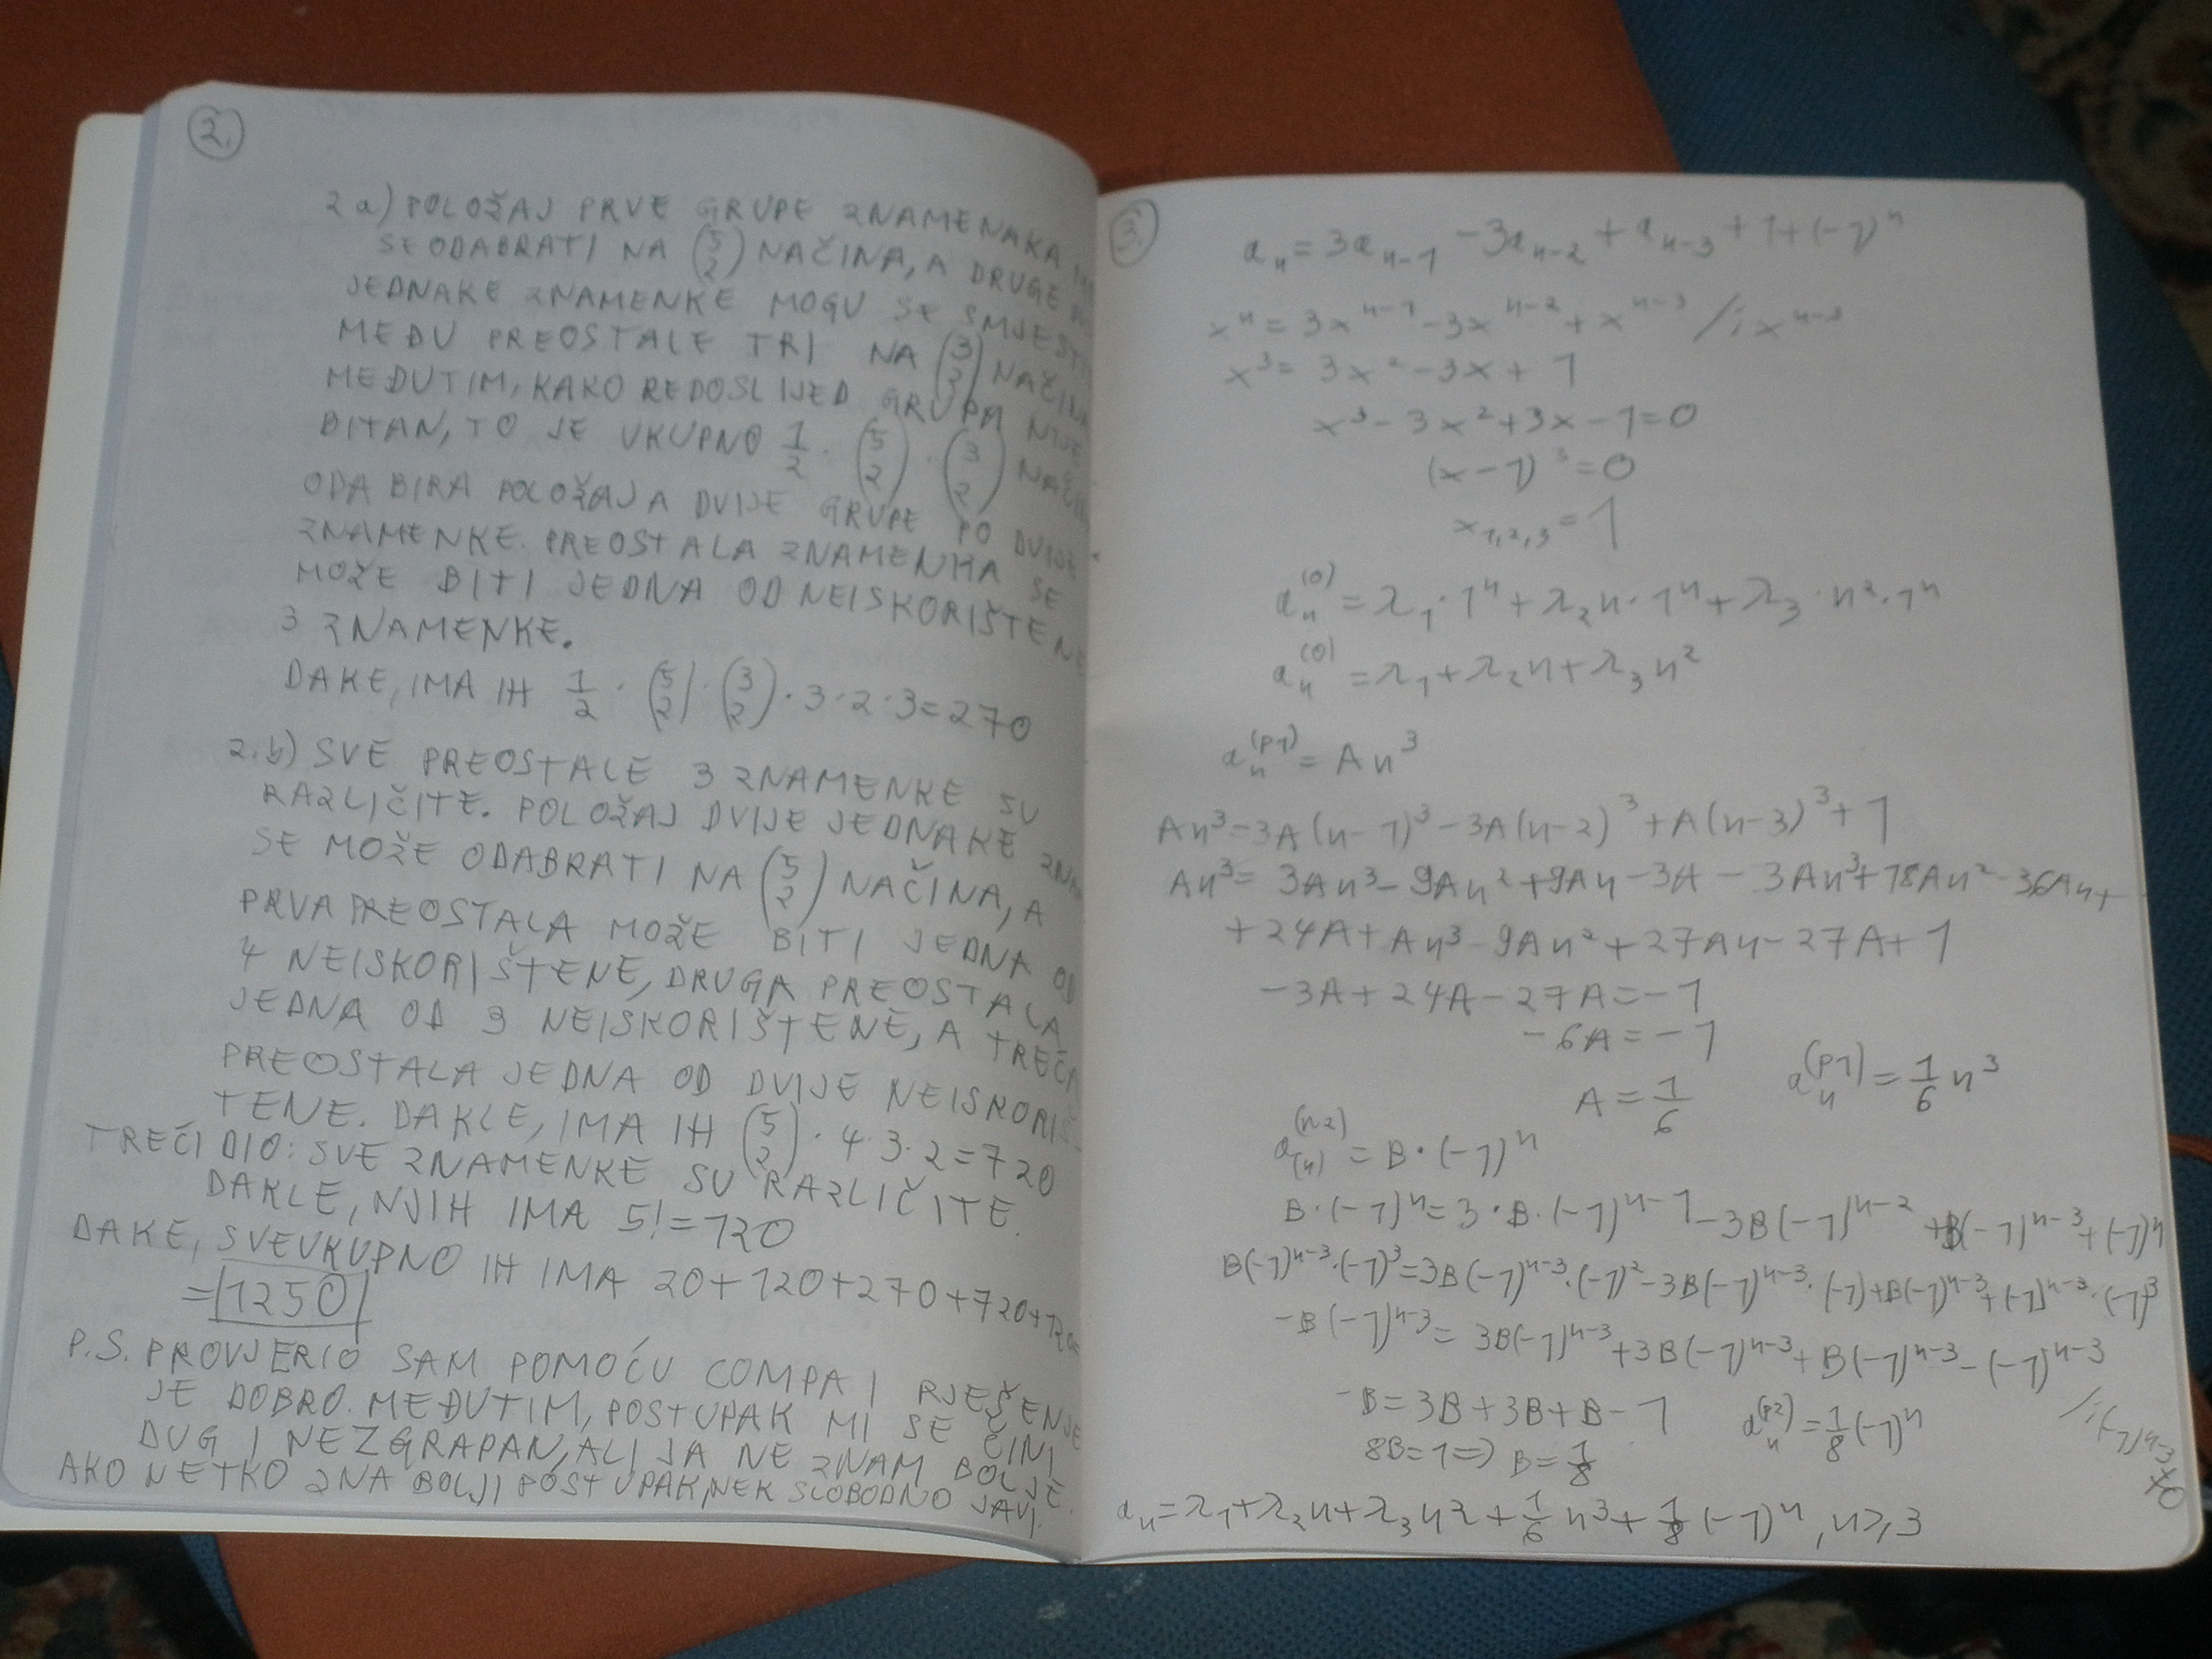 2.
2 a) POLOŽAJ PRVE GRUPE ZNAMENAKA
SE ODABRATI NA (5 2) NAČINA, A DRUGE
JEDNAKE ZNAMENKE MOGU SE SMJESTI
MEĐU PREOSTALE TRI NA (3 2) NAČINA
MEĐUTIM, KAKO REDOSLIJED GRUPA NIJE
BITAN, TO JE UKUPNO 1/2 · (5 2) · (3 2) NAČIN
ODABIRA POLOŽAJA DVIJE GRUPE PO DVIJE
ZNAMENKE. PREOSTALA ZNAMENKA SE
MOŽE BITI JEDNA OD NEISKORIŠTENE
3 ZNAMENKE.
DAKE, IMA IH 1/2 · (5 2) · (3 2) · 3 · 2 · 3 = 270
2.b) SVE PREOSTALE 3 ZNAMENKE SU
RAZLIČITE. POLOŽAJ DVIJE JEDNAKE ZNA
SE MOŽE ODABRATI NA (5 2) NAČINA, A
PRVA PREOSTALA MOŽE BITI JEDNA OD
4 NEISKORIŠTENE, DRUGA PREOSTALA
JEDNA OD 3 NEISKORIŠTENE, A TREĆA
PREOSTALA JEDNA OD DVIJE NEISKORIŠ-
TENE. DAKLE, IMA IH (5 2) · 4 · 3 · 2 = 720
TREĆI DIO: SVE ZNAMENKE SU RAZLIČITE.
DAKLE, NJIH IMA 5! = 120
DAKE, SVEUKUPNO IH IMA 20+120+270+720+120
= 1250
P.S. PROVJERIO SAM POMOĆU COMPA I RJEŠENJE
JE DOBRO. MEĐUTIM, POSTUPAK MI SE ČINI
DUG I NEZGRAPAN, ALI JA NE ZNAM BOLJE.
AKO NETKO ZNA BOLJI POSTUPAK, NEK SLOBODNO JAVI.
3.
aₙ = 3aₙ₋₁ - 3aₙ₋₂ + aₙ₋₃ + 1 + (-1)ⁿ
xⁿ = 3xⁿ⁻¹ - 3xⁿ⁻² + xⁿ⁻³ /: xⁿ⁻³
x³ = 3x² - 3x + 1
x³ - 3x² + 3x - 1 = 0
(x-1)³ = 0
x₁,₂,₃ = 1
aₙ⁽⁰⁾ = λ₁·1ⁿ + λ₂n·1ⁿ + λ₃·n²·1ⁿ
aₙ⁽⁰⁾ = λ₁ + λ₂n + λ₃n²
aₙ⁽ᵖ¹⁾ = An³
An³ = 3A(n-1)³ - 3A(n-2)³ + A(n-3)³ + 1
An³ = 3An³ - 9An² + 9An - 3A - 3An³ + 18An² - 36An +
+ 24A + An³ - 9An² + 27An - 27A + 1
-3A + 24A - 27A = -1
-6A = -1
A = 1/6 aₙ⁽ᵖ¹⁾ = 1/6 n³
a₍ₙ₎⁽ⁿ²⁾ = B·(-1)ⁿ
B·(-1)ⁿ = 3·B·(-1)ⁿ⁻¹ - 3B(-1)ⁿ⁻² + B(-1)ⁿ⁻³ + (-1)ⁿ
B(-1)ⁿ⁻³·(-1)³ = 3B(-1)ⁿ⁻³·(-1)² - 3B(-1)ⁿ⁻³·(-1) + B(-1)ⁿ⁻³ + (-1)ⁿ⁻³·(-1)³
-B(-1)ⁿ⁻³ = 3B(-1)ⁿ⁻³ + 3B(-1)ⁿ⁻³ + B(-1)ⁿ⁻³ - (-1)ⁿ⁻³ /:(-1)ⁿ⁻³ ≠ 0
-B = 3B + 3B + B - 1 aₙ⁽ᵖ²⁾ = 1/8 (-1)ⁿ
8B = 1 ⇒ B = 1/8
aₙ = λ₁ + λ₂n + λ₃n² + 1/6 n³ + 1/8 (-1)ⁿ, n ≥ 3